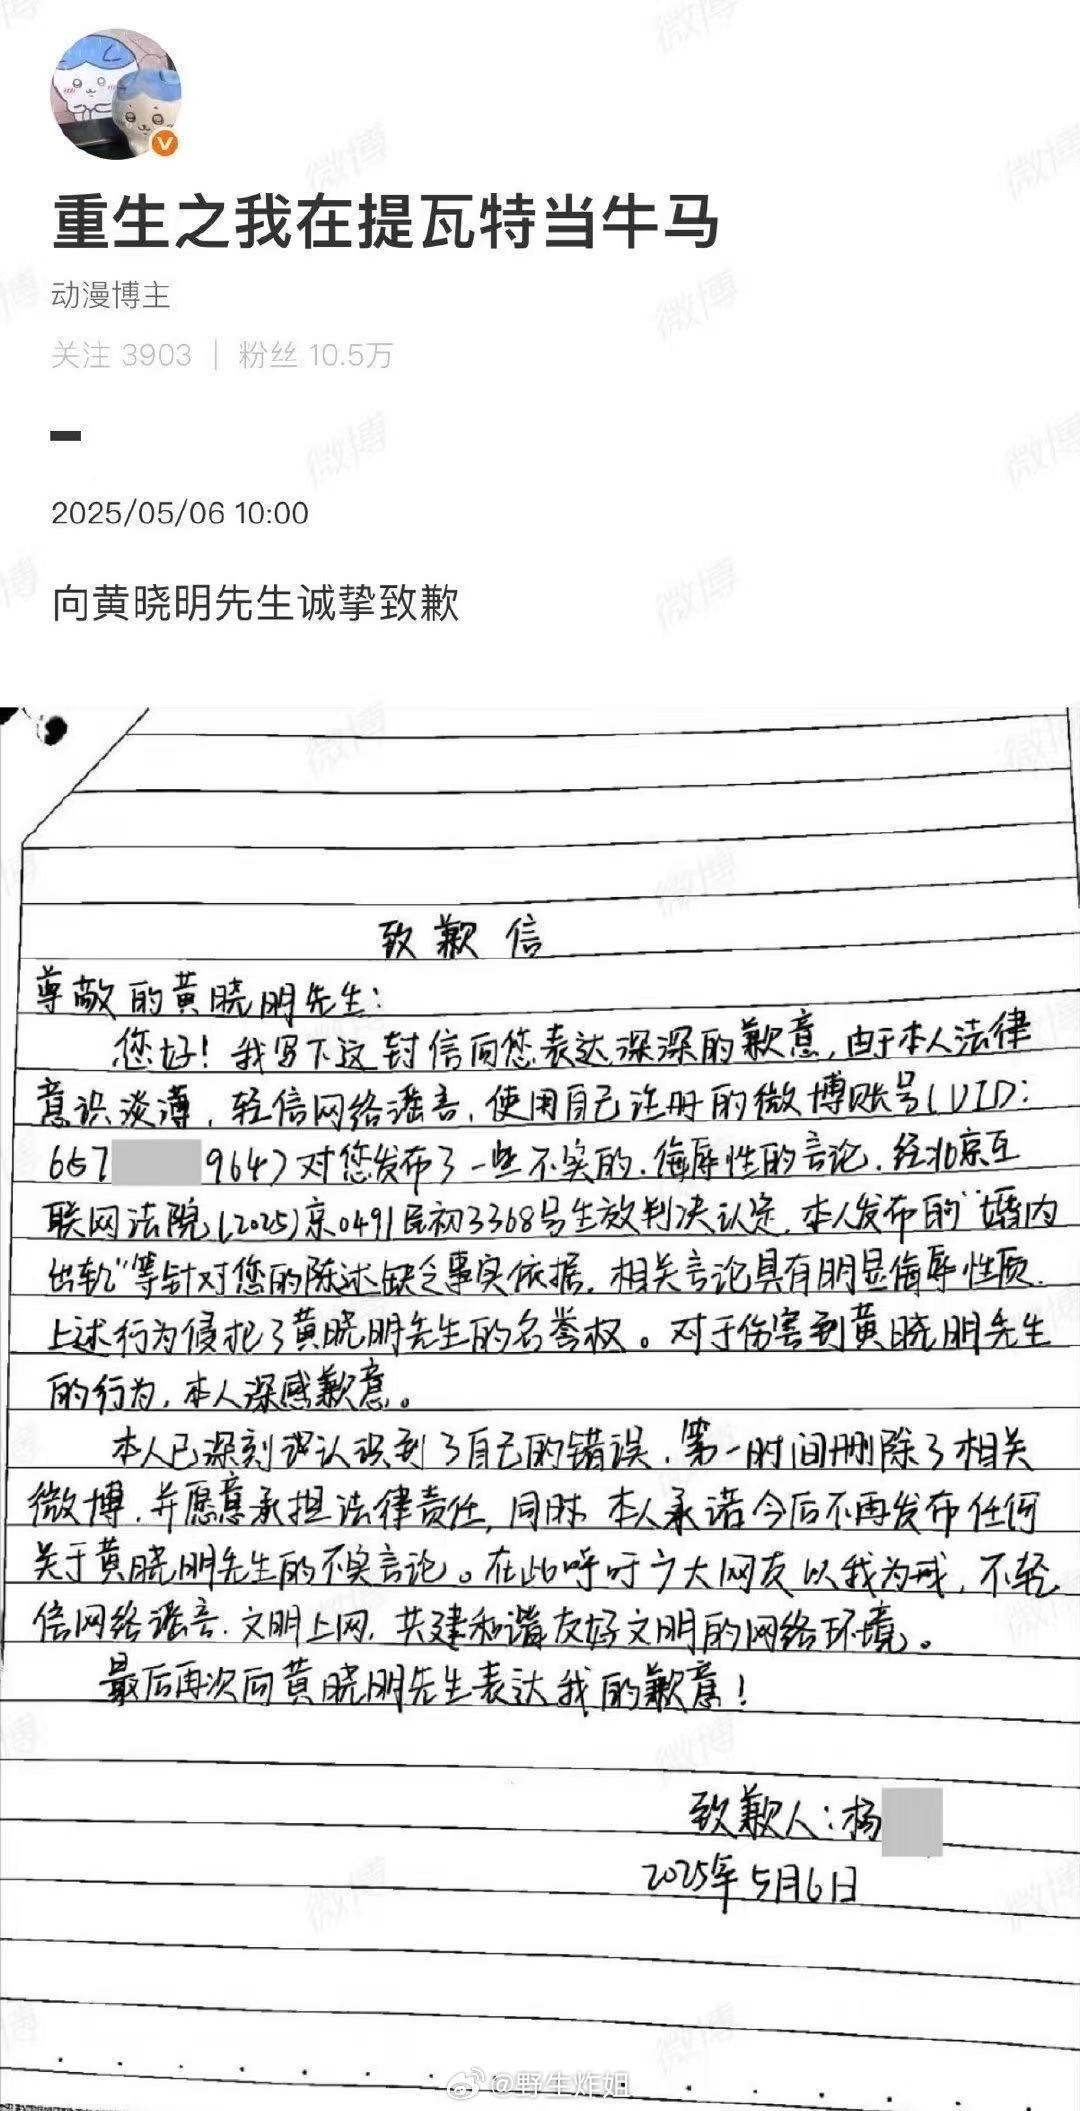 重生之我在提瓦特当牛马
动漫博主
关注 3903 | 粉丝 10.5万
2025/05/06 10:00
向黄晓明先生诚挚致歉
致歉信
尊敬的黄晓明先生:
您好！我写下这封信向您表达深深的歉意,由于本人法律
意识淡薄,轻信网络谣言,使用自己注册的微博账号(UID:
657 9647对您发布了一些不实的、侮辱性的言论,经北京互
联网法院(2025)京0491民初3368号生效判决认定,本人发布的“婚内
出轨”等针对您的陈述缺乏事实依据,相关言论具有明显侮辱性质.
上述行为侵犯了黄晓明先生的名誉权。对于伤害到黄晓明先生
的行为,本人深感歉意。
本人已深刻认识到了自己的错误,第一时间删除了相关
微博,并愿意承担法律责任,同时本人承诺今后不再发布任何
关于黄晓明先生的不实言论。在此呼吁广大网友以我为戒,不轻
信网络谣言.文明上网,共建和谐友好文明的网络环境。
最后再次向黄晓明先生表达我的歉意！
致歉人:杨
2025年5月6日
@野生炸姐